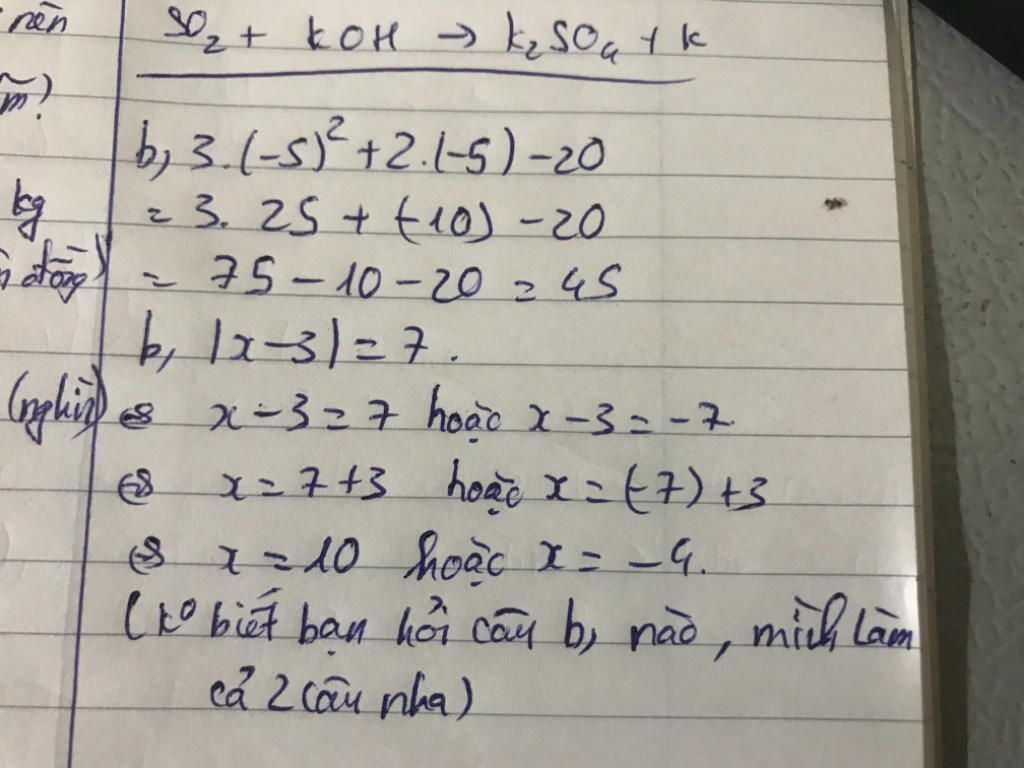 nên
SO₂ + kOH → k₂SO₄ + k
b, 3.(-5)² + 2.(-5) - 20
kg
= 3. 25 + (-10) - 20
đồng)
= 75 - 10 - 20 = 45
b, |x - 3| = 7.
(nghìn)
⇔ x - 3 = 7 hoặc x - 3 = -7
⇔ x = 7 + 3 hoặc x = (-7) + 3
⇔ x = 10 hoặc x = -4.
(k⁰ biết bạn hỏi câu b, nào, mình làm
cả 2 câu nha)